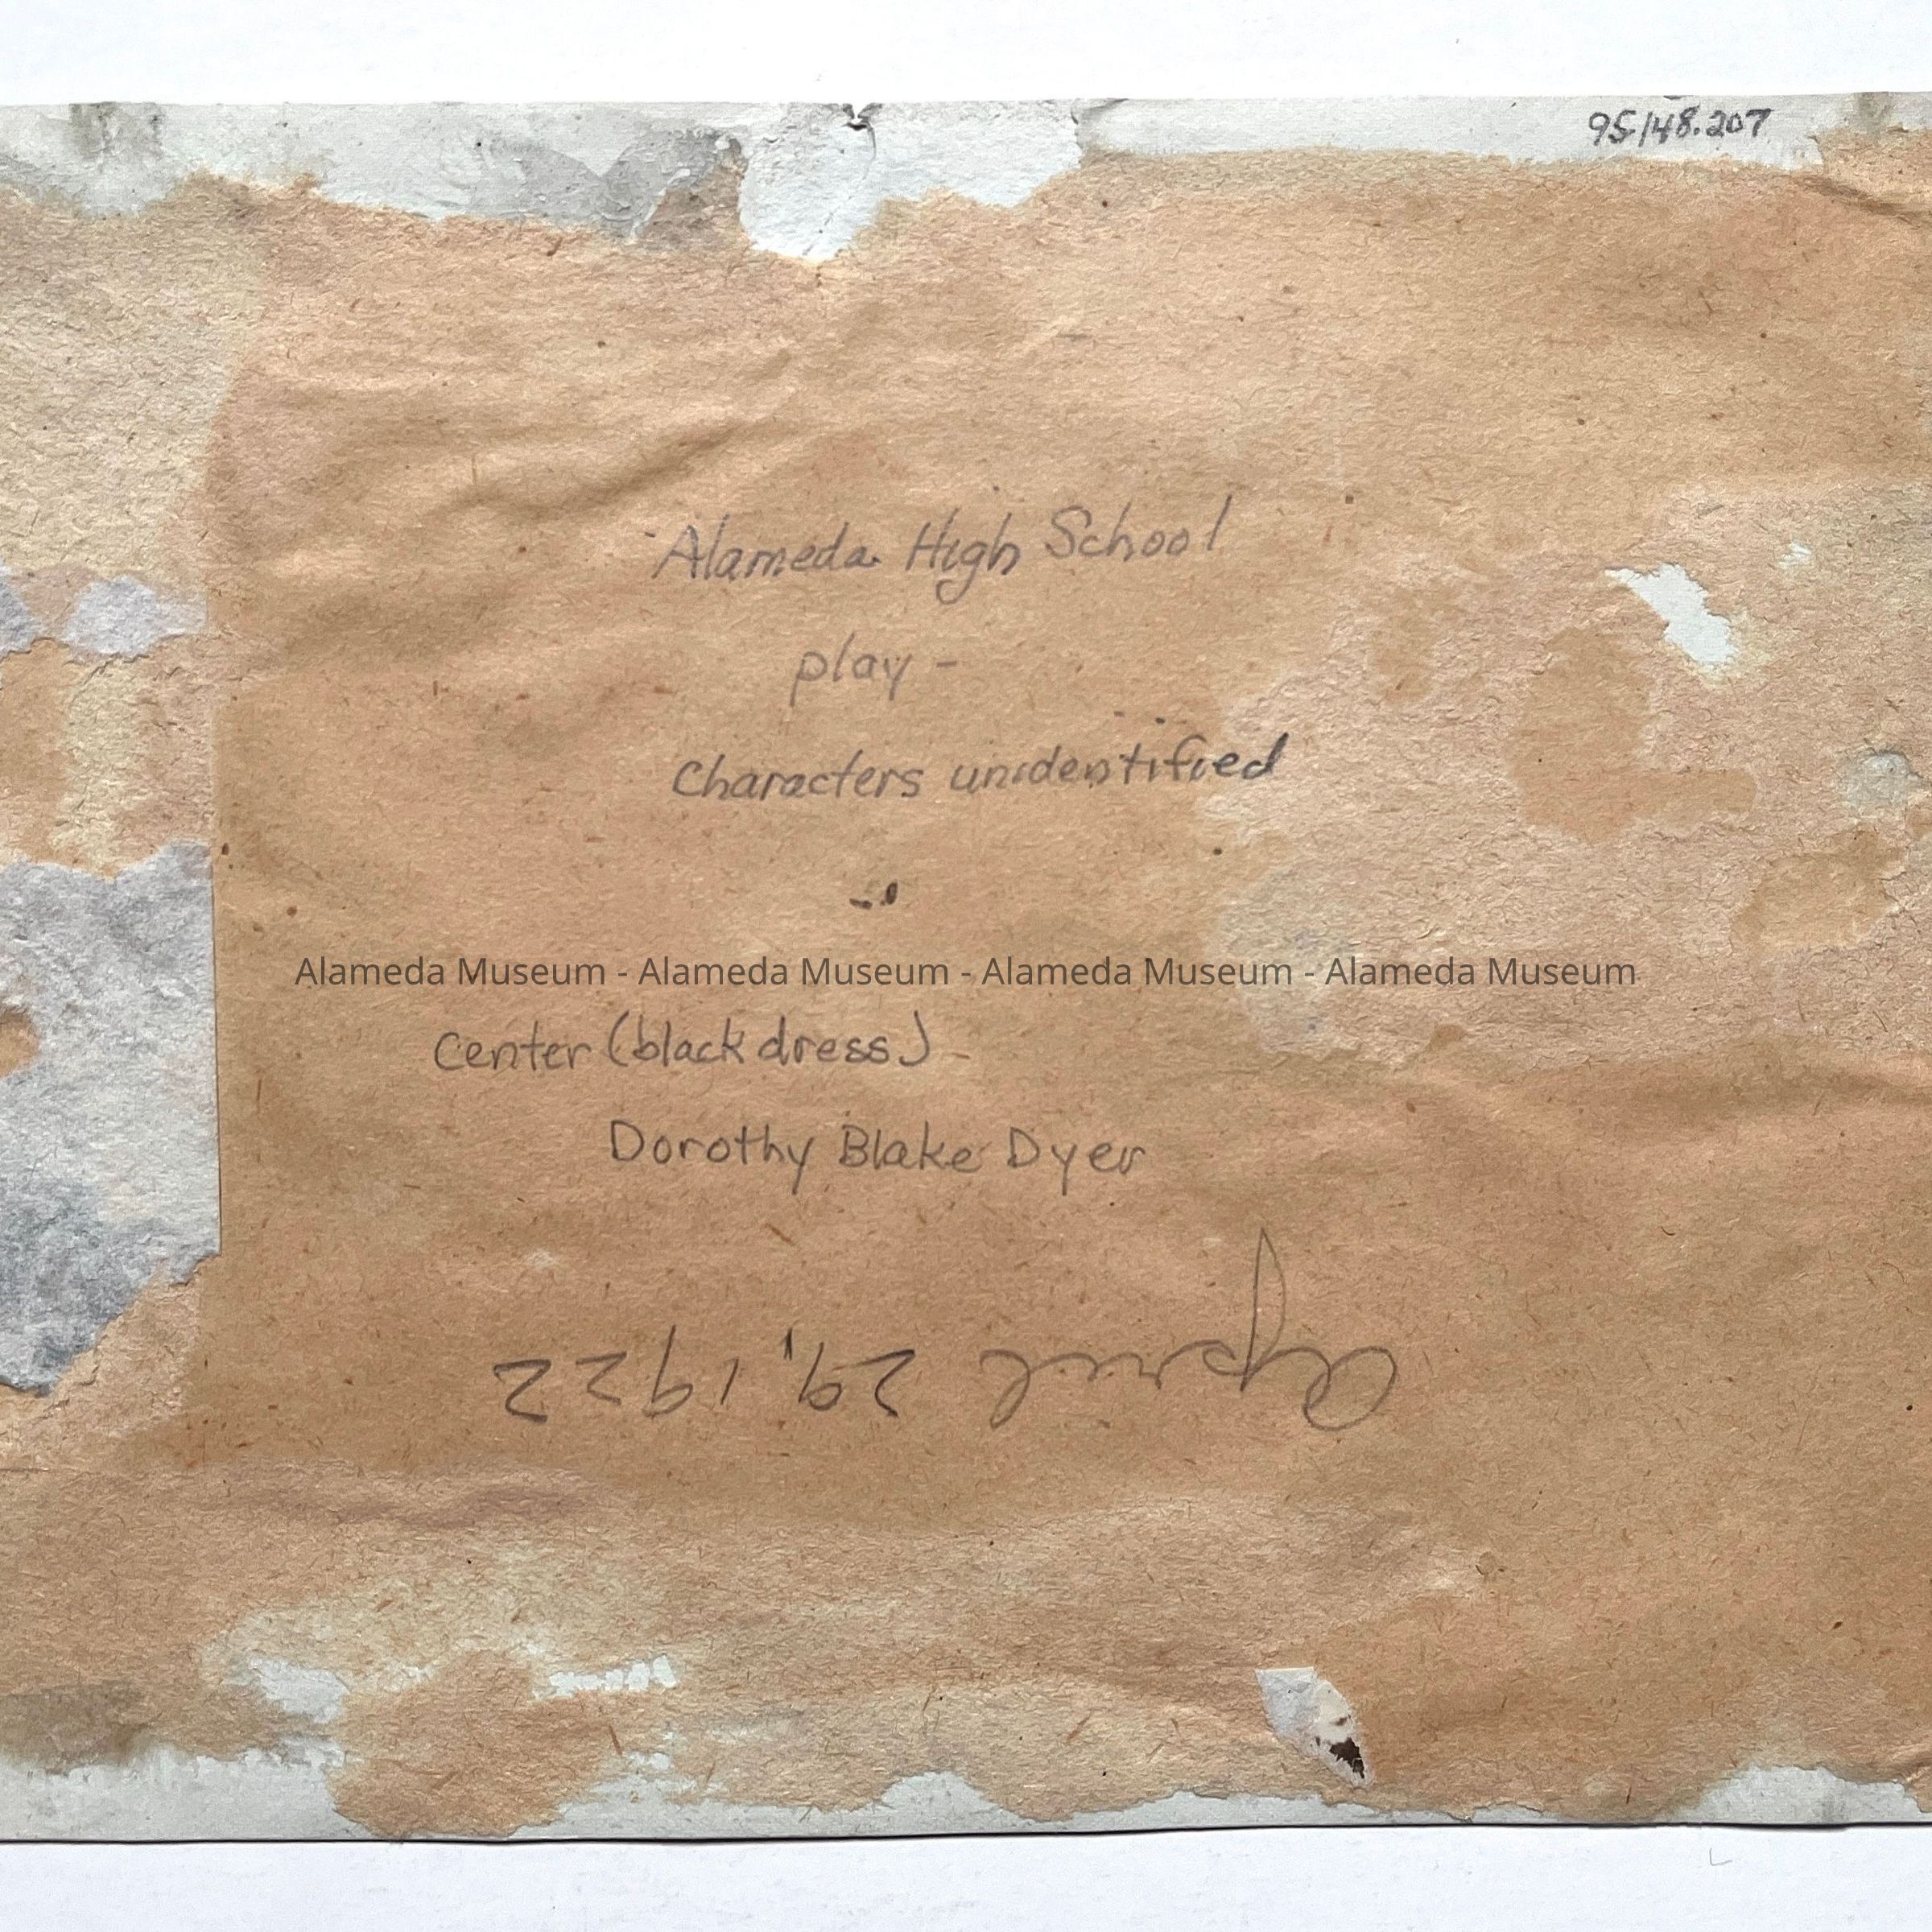 95148.207
Alameda High School
play -
Characters unidentified
Alameda Museum - Alameda Museum - Alameda Museum - Alameda Museum
Center (black dress) -
Dorothy Blake Dyer
April 29, 1922